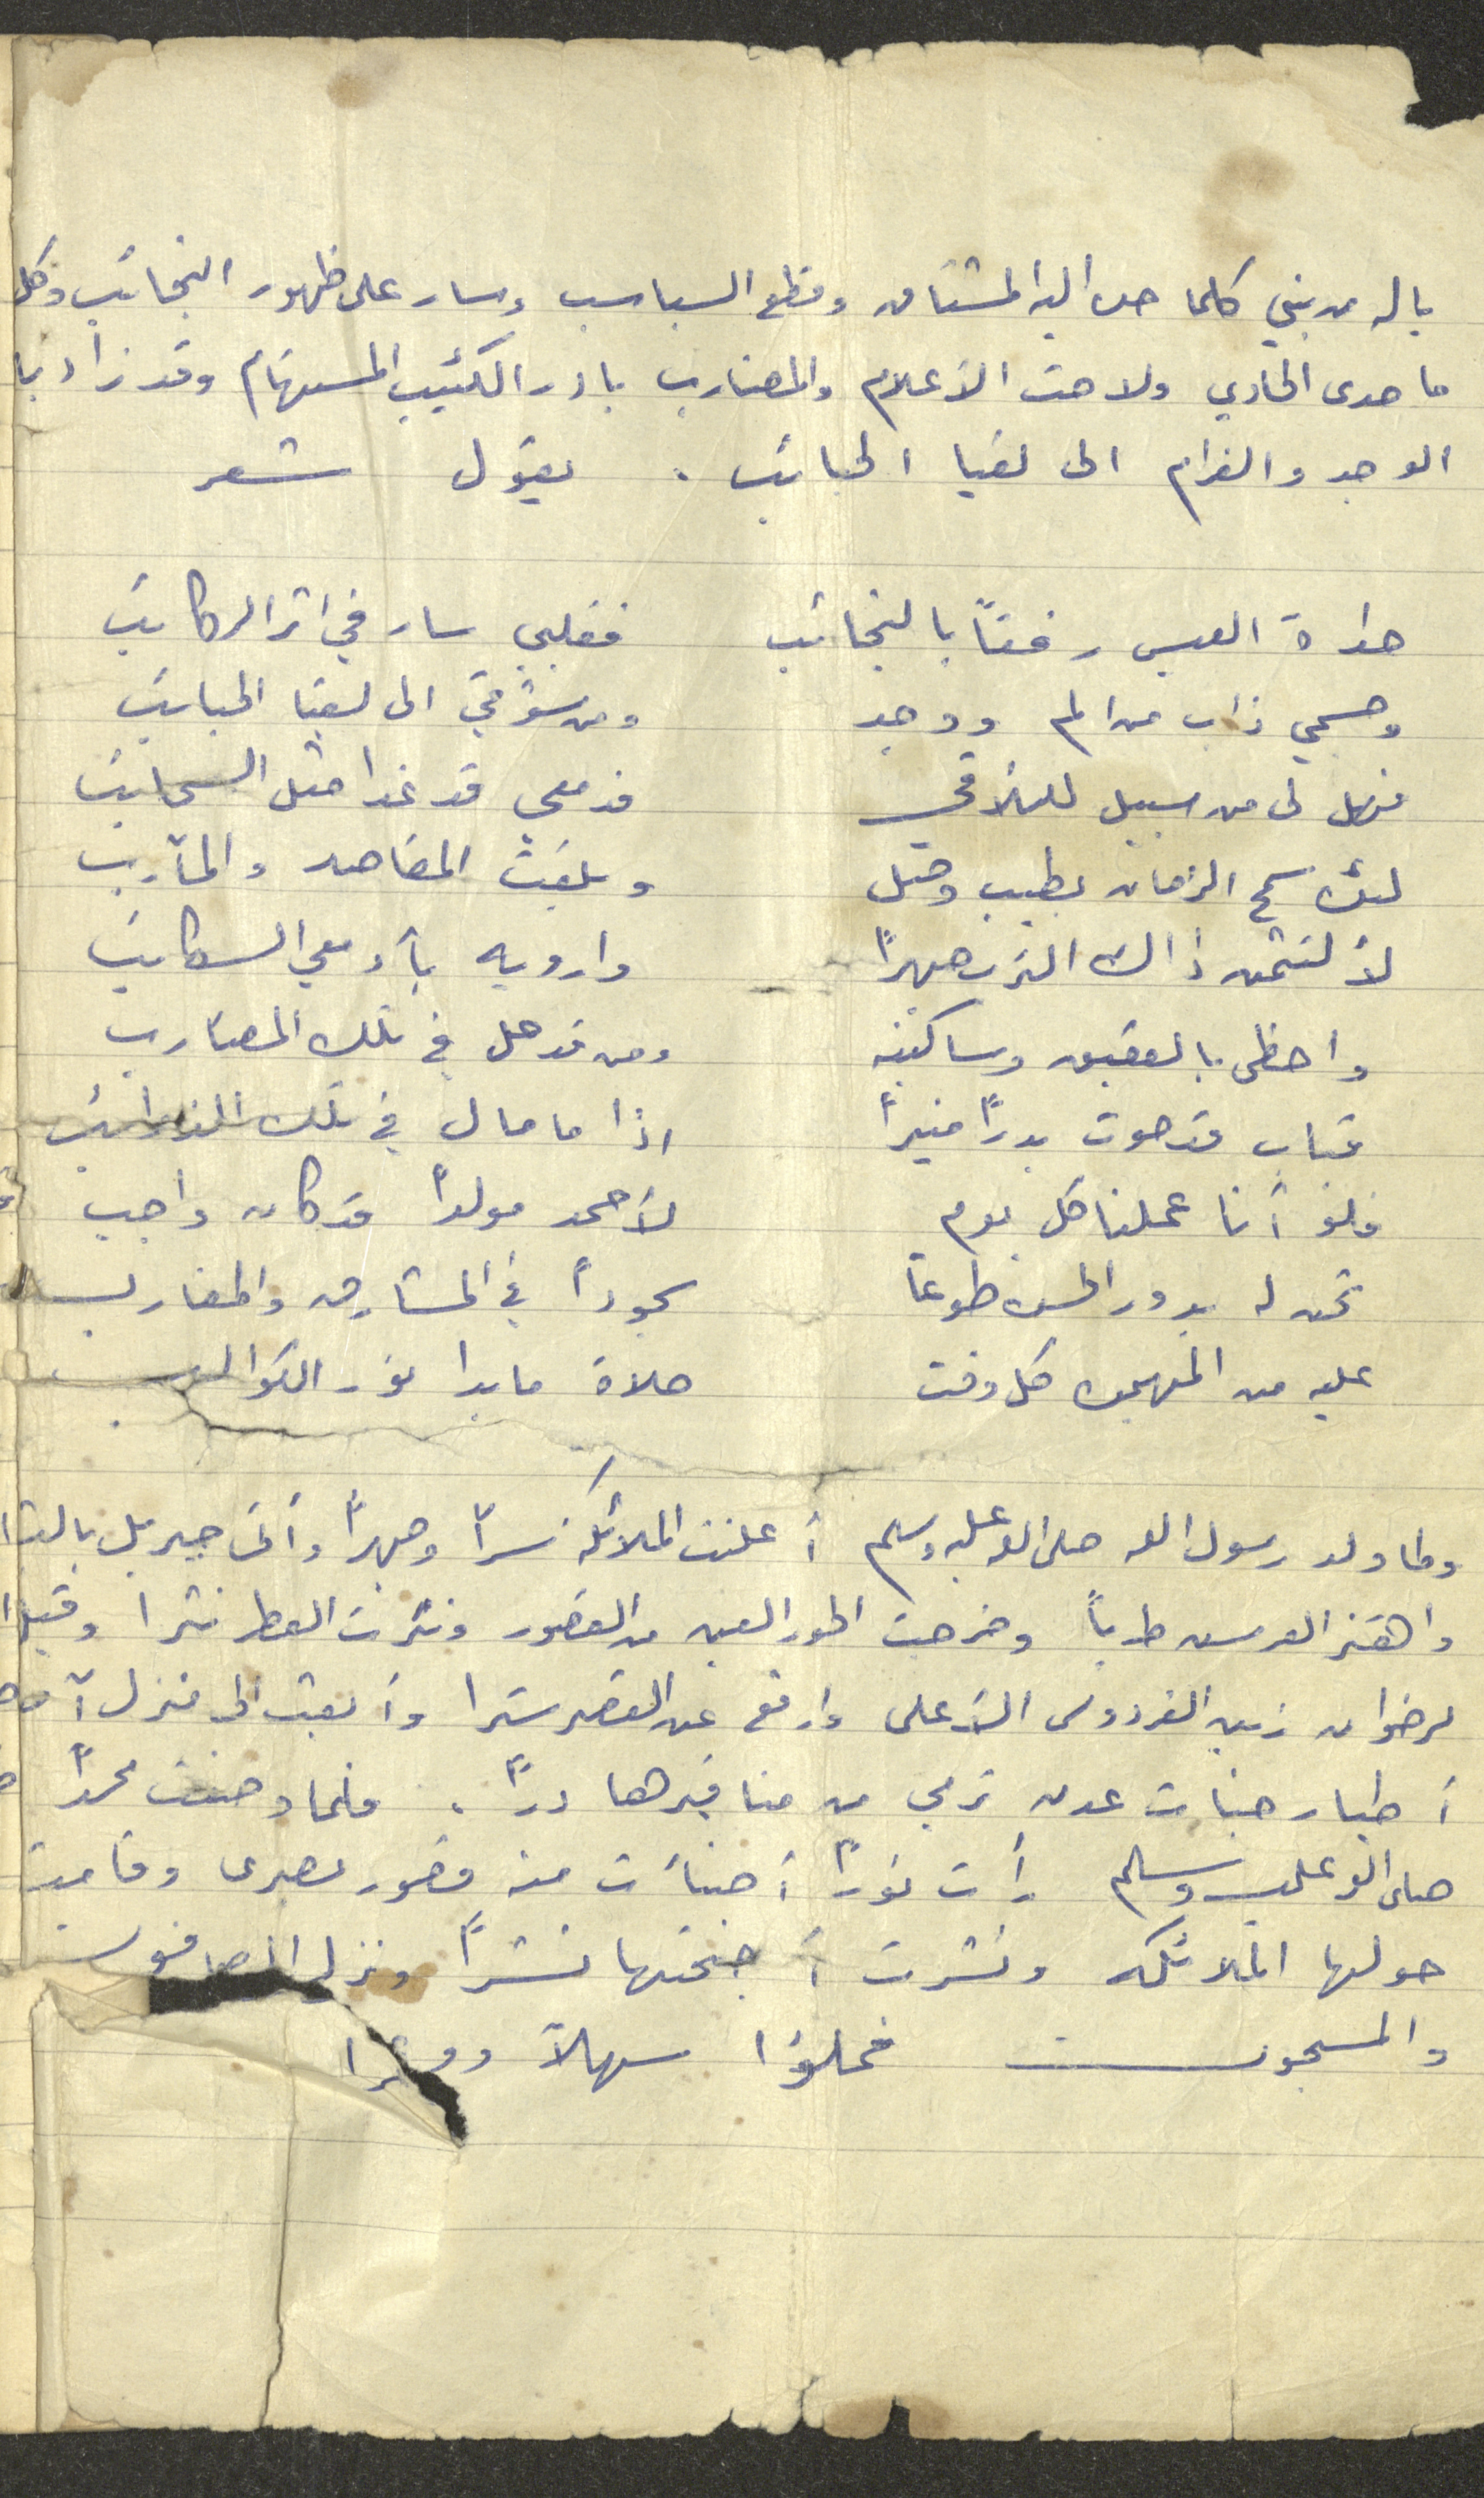 يا له من نبي كلما حن اليه المشتاق وقطع السباسب وسار على ظهور النجائب وكل
ما حدى الحادي ولاحت الأعلام والمضارب بادر الكئيب المستهام وقد زاد با
الوجد والغرام الى لقيا الحبائب . يقول شعر
حداة العيس رفقاً بالنجائب فقلبي سار في اثر الركائب
وجسمي ذاب من الم ووجد ومن شوقي الى لقيا الحبائب
فهل لي من سبيل للتلاقي فدمعي قد غدا مثل السحائب
لئن سمح الزمان بطيب وصل وبلغت المقاصد والمآرب
لألثمن ذاك الترب جهراً وارويه بأدمعي السكائب
واحظى بالعقيق وساكنيه ومن قد حل في تلك المضارب
قباب قد حوت بدراً منيراً اذا ما مال في تلك الذوائب
فلو أنا عملنا كل يوم لأحمد مولداً قد كان واجب
تخر له بدور الحسن طوعاً سجوداً في المشارق والمغارب
عليه من المهيمن كل وقت صلاة ما بدا نور الكواكب
ولما ولد رسول الله صلى الله عليه وسلم أعلنت الملائكة سراً وجهراً وأتى جبريل بالبشا
واهتز العرش طرباً وخرجت الحور العين من القصور ونثرت العطر نثرا وقيل
لرضوان زين الفردوس الأعلى وارفع عن القصر سترا وأبعث الى منزل آمنة
أطيار جنات عدن ترمي من مناقيرها دراً . فلما وضعت محمداً
صلى الله عليه وسلم رأت نوراً أضائت منه قصور بصرى وقامت
حولها الملائكه ونشرت أجنحتها نشراً ونزل الصافون
والمسبحون فملؤا سهلاً ووعرا